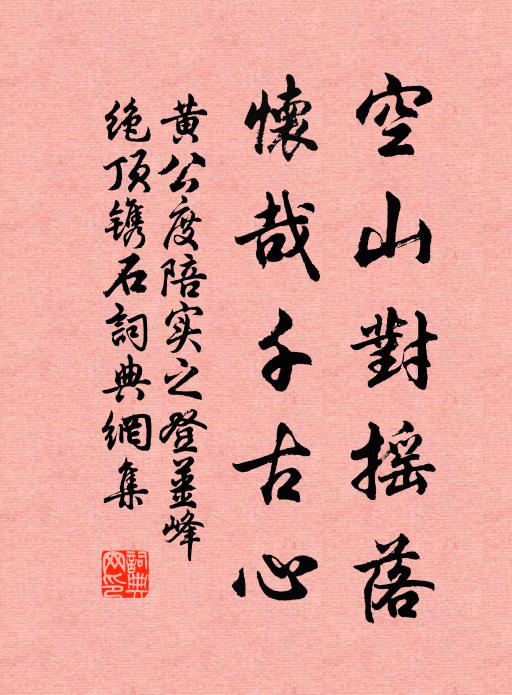 空山對摇落
懷哉千古心
黄公度陪实之登薑峰
绝顶镌石詞典網集
詞典
网印